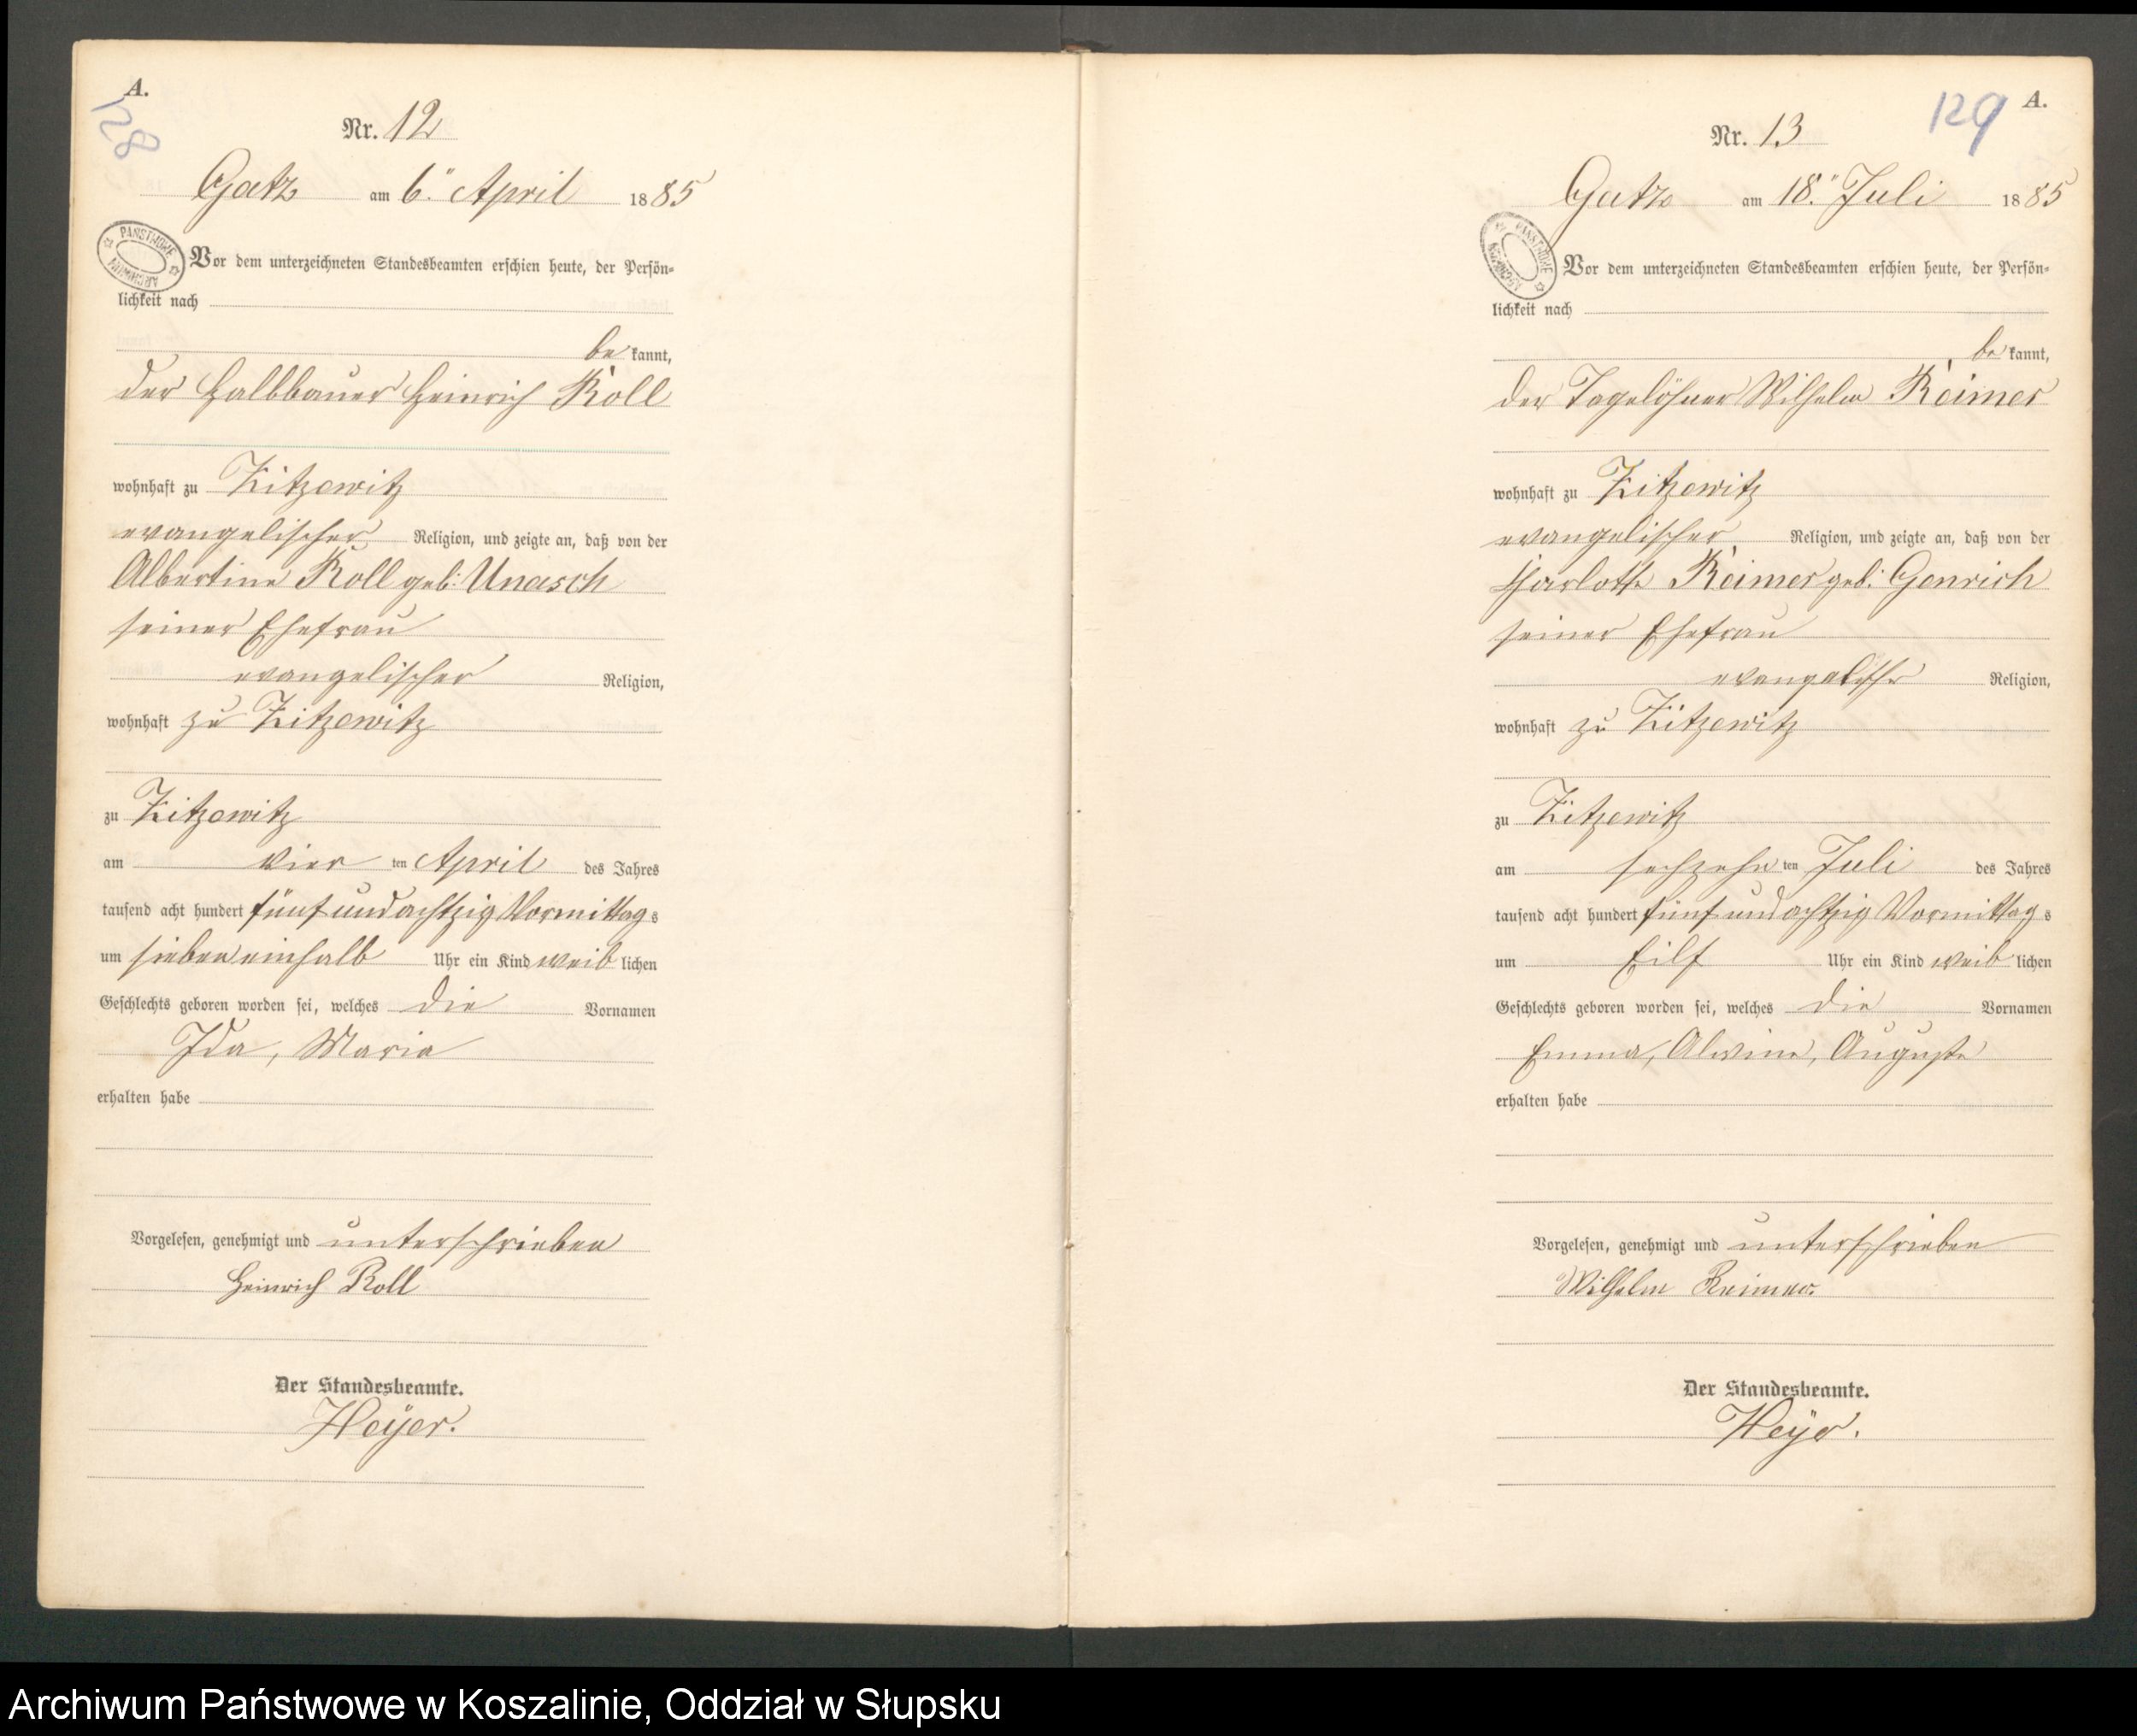 A.
128
Nr. 12
Gatz am 6. April 1885
PAŃSTWOWE ARCHIWUM
Vor dem unterzeichneten Standesbeamten erschien heute, der Persön-
lichkeit nach
be kannt,
der Halbbauer Heinrich Roll
wohnhaft zu Zitzewitz
evangelischer Religion, und zeigte an, daß von der
Albertine Roll geb: Unasch
seiner Ehefrau
evangelischer Religion,
wohnhaft zu Zitzewitz
zu Zitzewitz
am vier ten April des Jahres
tausend acht hundert fünf und achtzig Vormittags
um sieben einhalb Uhr ein Kind weib lichen
Geschlechts geboren worden sei, welches die Vornamen
Ida, Maria
erhalten habe
Vorgelesen, genehmigt und unterschrieben
Heinrich Roll
Der Standesbeamte.
Heÿer.
129
A.
Nr. 13
Gatz am 18. Juli 1885
PAŃSTWOWE ARCHIWUM
Vor dem unterzeichneten Standesbeamten erschien heute, der Persön-
lichkeit nach
be kannt,
der Tagelöhner Wilhelm Reimer
wohnhaft zu Zitzewitz
evangelischer Religion, und zeigte an, daß von der
Charlotte Reimer geb: Genrich
seiner Ehefrau
evangelischer Religion,
wohnhaft zu Zitzewitz
zu Zitzewitz
am sechzehn ten Juli des Jahres
tausend acht hundert fünf und achtzig Vormittags
um Eilf Uhr ein Kind weib lichen
Geschlechts geboren worden sei, welches die Vornamen
Emma, Alwine, Auguste
erhalten habe
Vorgelesen, genehmigt und unterschrieben
Wilhelm Reimer.
Der Standesbeamte.
Heÿer.
Archiwum Państwowe w Koszalinie, Oddział w Słupsku